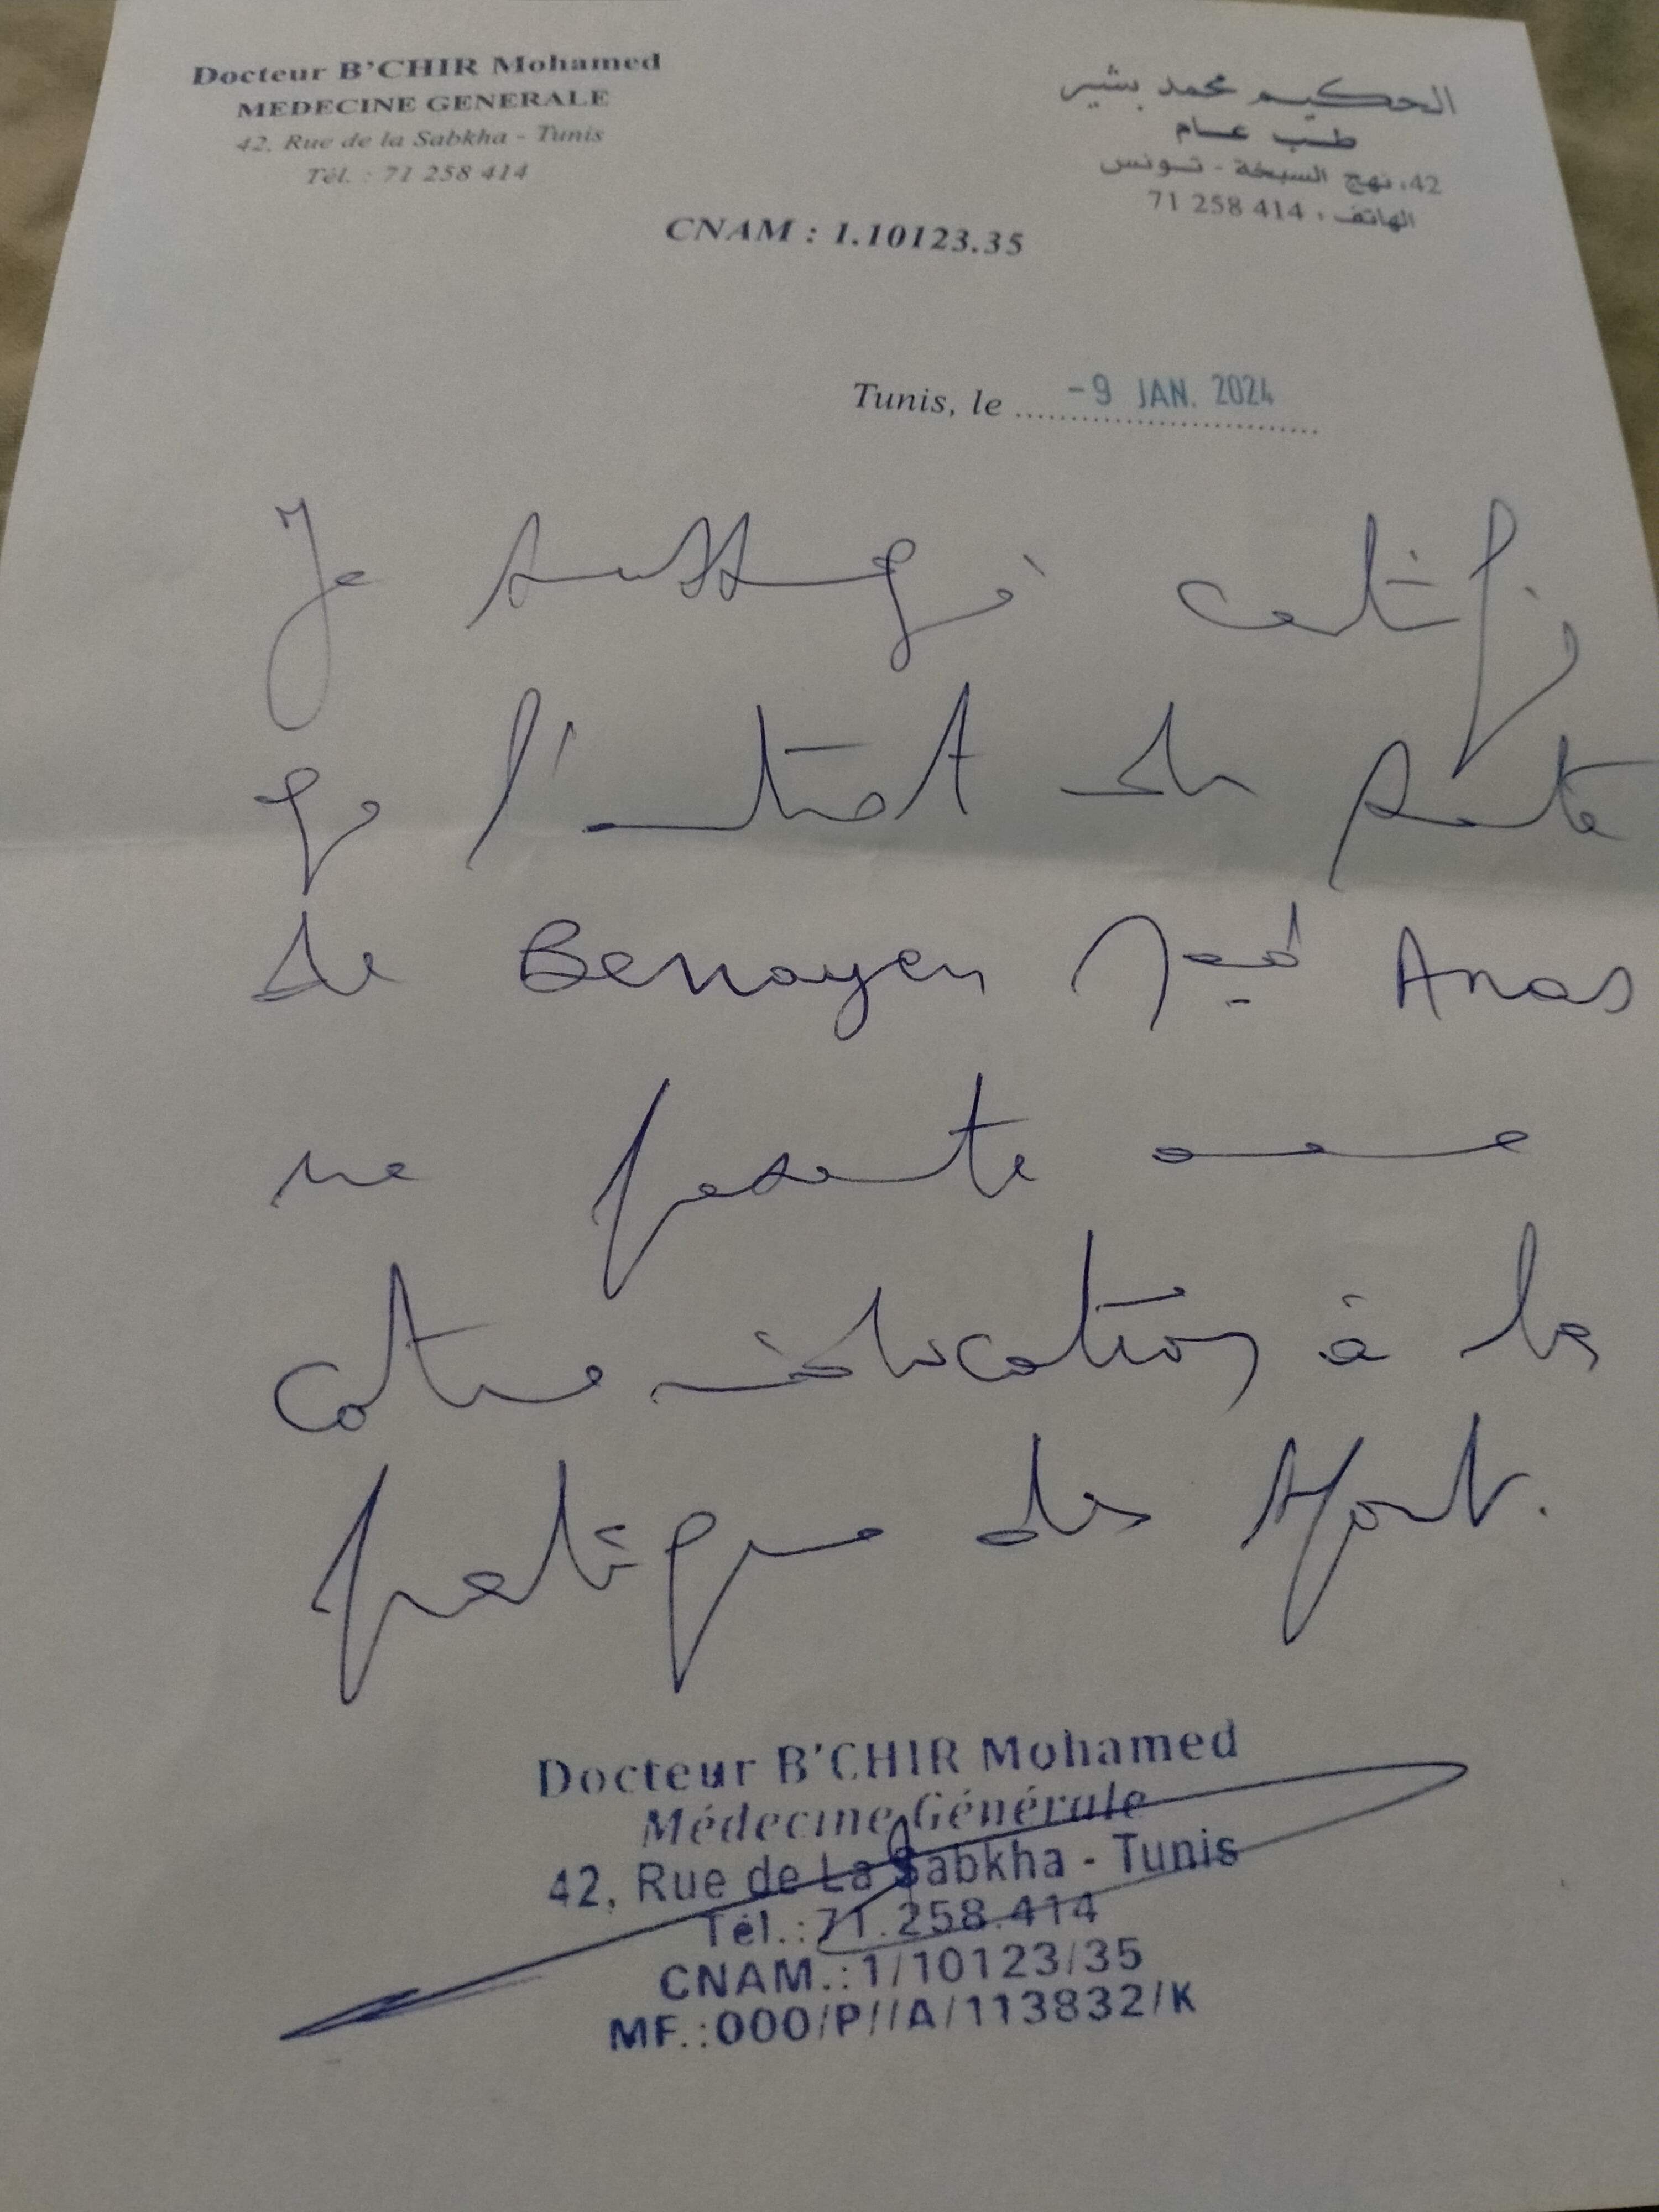 Docteur B'CHIR Mohamed
MEDECINE GENERALE
42, Rue de la Sabkha - Tunis
Tél. : 71 258 414
الحكيم محمد بشير
طب عام
42، نهج السبخة - تونس
الهاتف : 71 258 414
CNAM : 1.10123.35
Tunis, le -9 JAN. 2024
Je soussigné certifie
que l'état de santé
de Benayen Med Anas
ne présente aucune
contre indication à la
pratique des sport.
Docteur B'CHIR Mohamed
Médecine Générale
42, Rue de La Sabkha - Tunis
Tél.:71.258.414
CNAM.:1/10123/35
MF.:000/P//A/113832/K